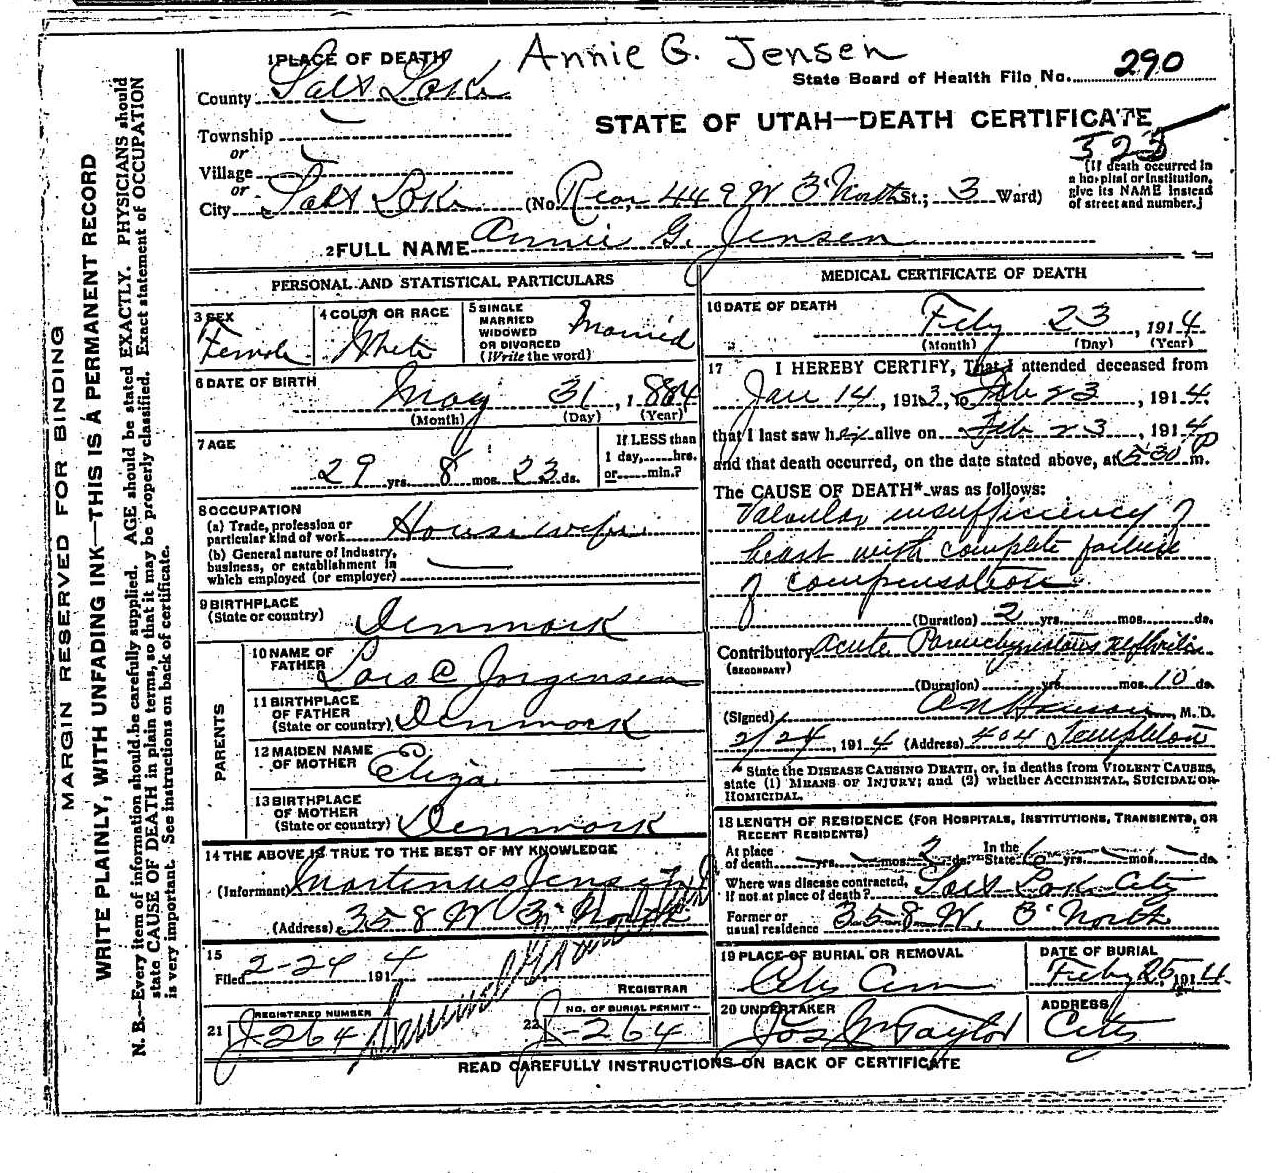 Annie G. Jensen
1 PLACE OF DEATH
State Board of Health File No. 290
County Salt Lake
STATE OF UTAH—DEATH CERTIFICATE
Township
or
Village
or
City Salt Lake (No. Rear, 449 W 3' North St.; 3 Ward)
323
(If death occurred in a hospital or institution, give its NAME instead of street and number.)
2 FULL NAME Annie G. Jensen
PERSONAL AND STATISTICAL PARTICULARS
3 SEX
Female
4 COLOR OR RACE
White
5 SINGLE
MARRIED
WIDOWED
OR DIVORCED
(Write the word)
Married
6 DATE OF BIRTH
May 31, 1884
(Month) (Day) (Year)
7 AGE
29 yrs. 8 mos. 23 ds.
If LESS than
1 day, hrs.
or min.?
8 OCCUPATION
(a) Trade, profession or
particular kind of work Housewife
(b) General nature of Industry,
business, or establishment in
which employed (or employer)
9 BIRTHPLACE
(State or country)
Denmark
PARENTS
10 NAME OF
FATHER Lars C Jorgensen
11 BIRTHPLACE
OF FATHER
(State or country) Denmark
12 MAIDEN NAME
OF MOTHER Eliza
13 BIRTHPLACE
OF MOTHER
(State or country) Denmark
14 THE ABOVE IS TRUE TO THE BEST OF MY KNOWLEDGE
(Informant) Martinus Jensen
(Address) 358 W 3' North
15
Filed 2-24 1914
REGISTRAR
REGISTERED NUMBER
21 J-264
NO. OF BURIAL PERMIT
22 J-264
MEDICAL CERTIFICATE OF DEATH
16 DATE OF DEATH
Feby 23, 1914
(Month) (Day) (Year)
17 I HEREBY CERTIFY, That I attended deceased from
Jan 14, 1913, to Feb 23, 1914.
that I last saw her alive on Feb 23, 1914
and that death occurred, on the date stated above, at 5:30 P m.
The CAUSE OF DEATH* was as follows:
Valvular insufficiency of
heart with complete failure
of compensation
(Duration) 2 yrs. mos. ds.
Contributory Acute Parenchymatous nephritis
(SECONDARY)
(Duration) yrs. mos. 10 ds.
(Signed) A N Hanson, M. D.
2/24, 1914 (Address) 404 Templeton
* State the DISEASE CAUSING DEATH, or, in deaths from VIOLENT CAUSES,
state (1) MEANS OF INJURY; and (2) whether ACCIDENTAL, SUICIDAL OR
HOMICIDAL.
18 LENGTH OF RESIDENCE (FOR HOSPITALS, INSTITUTIONS, TRANSIENTS, OR
RECENT RESIDENTS)
At place
of death yrs. mos. 2 ds. In the
State 6 yrs. mos. ds.
Where was disease contracted,
If not at place of death? Salt Lake City
Former or
usual residence 358 W. 3' North
19 PLACE OF BURIAL OR REMOVAL
City Cem
DATE OF BURIAL
Feby 25, 1914
20 UNDERTAKER
Jos Wm Taylor
ADDRESS
City
READ CAREFULLY INSTRUCTIONS ON BACK OF CERTIFICATE
MARGIN RESERVED FOR BINDING
WRITE PLAINLY, WITH UNFADING INK—THIS IS A PERMANENT RECORD
N. B.—Every item of information should be carefully supplied. AGE should be stated EXACTLY. PHYSICIANS should
state CAUSE OF DEATH in plain terms, so that it may be properly classified. Exact statement of OCCUPATION
is very important. See instructions on back of certificate.